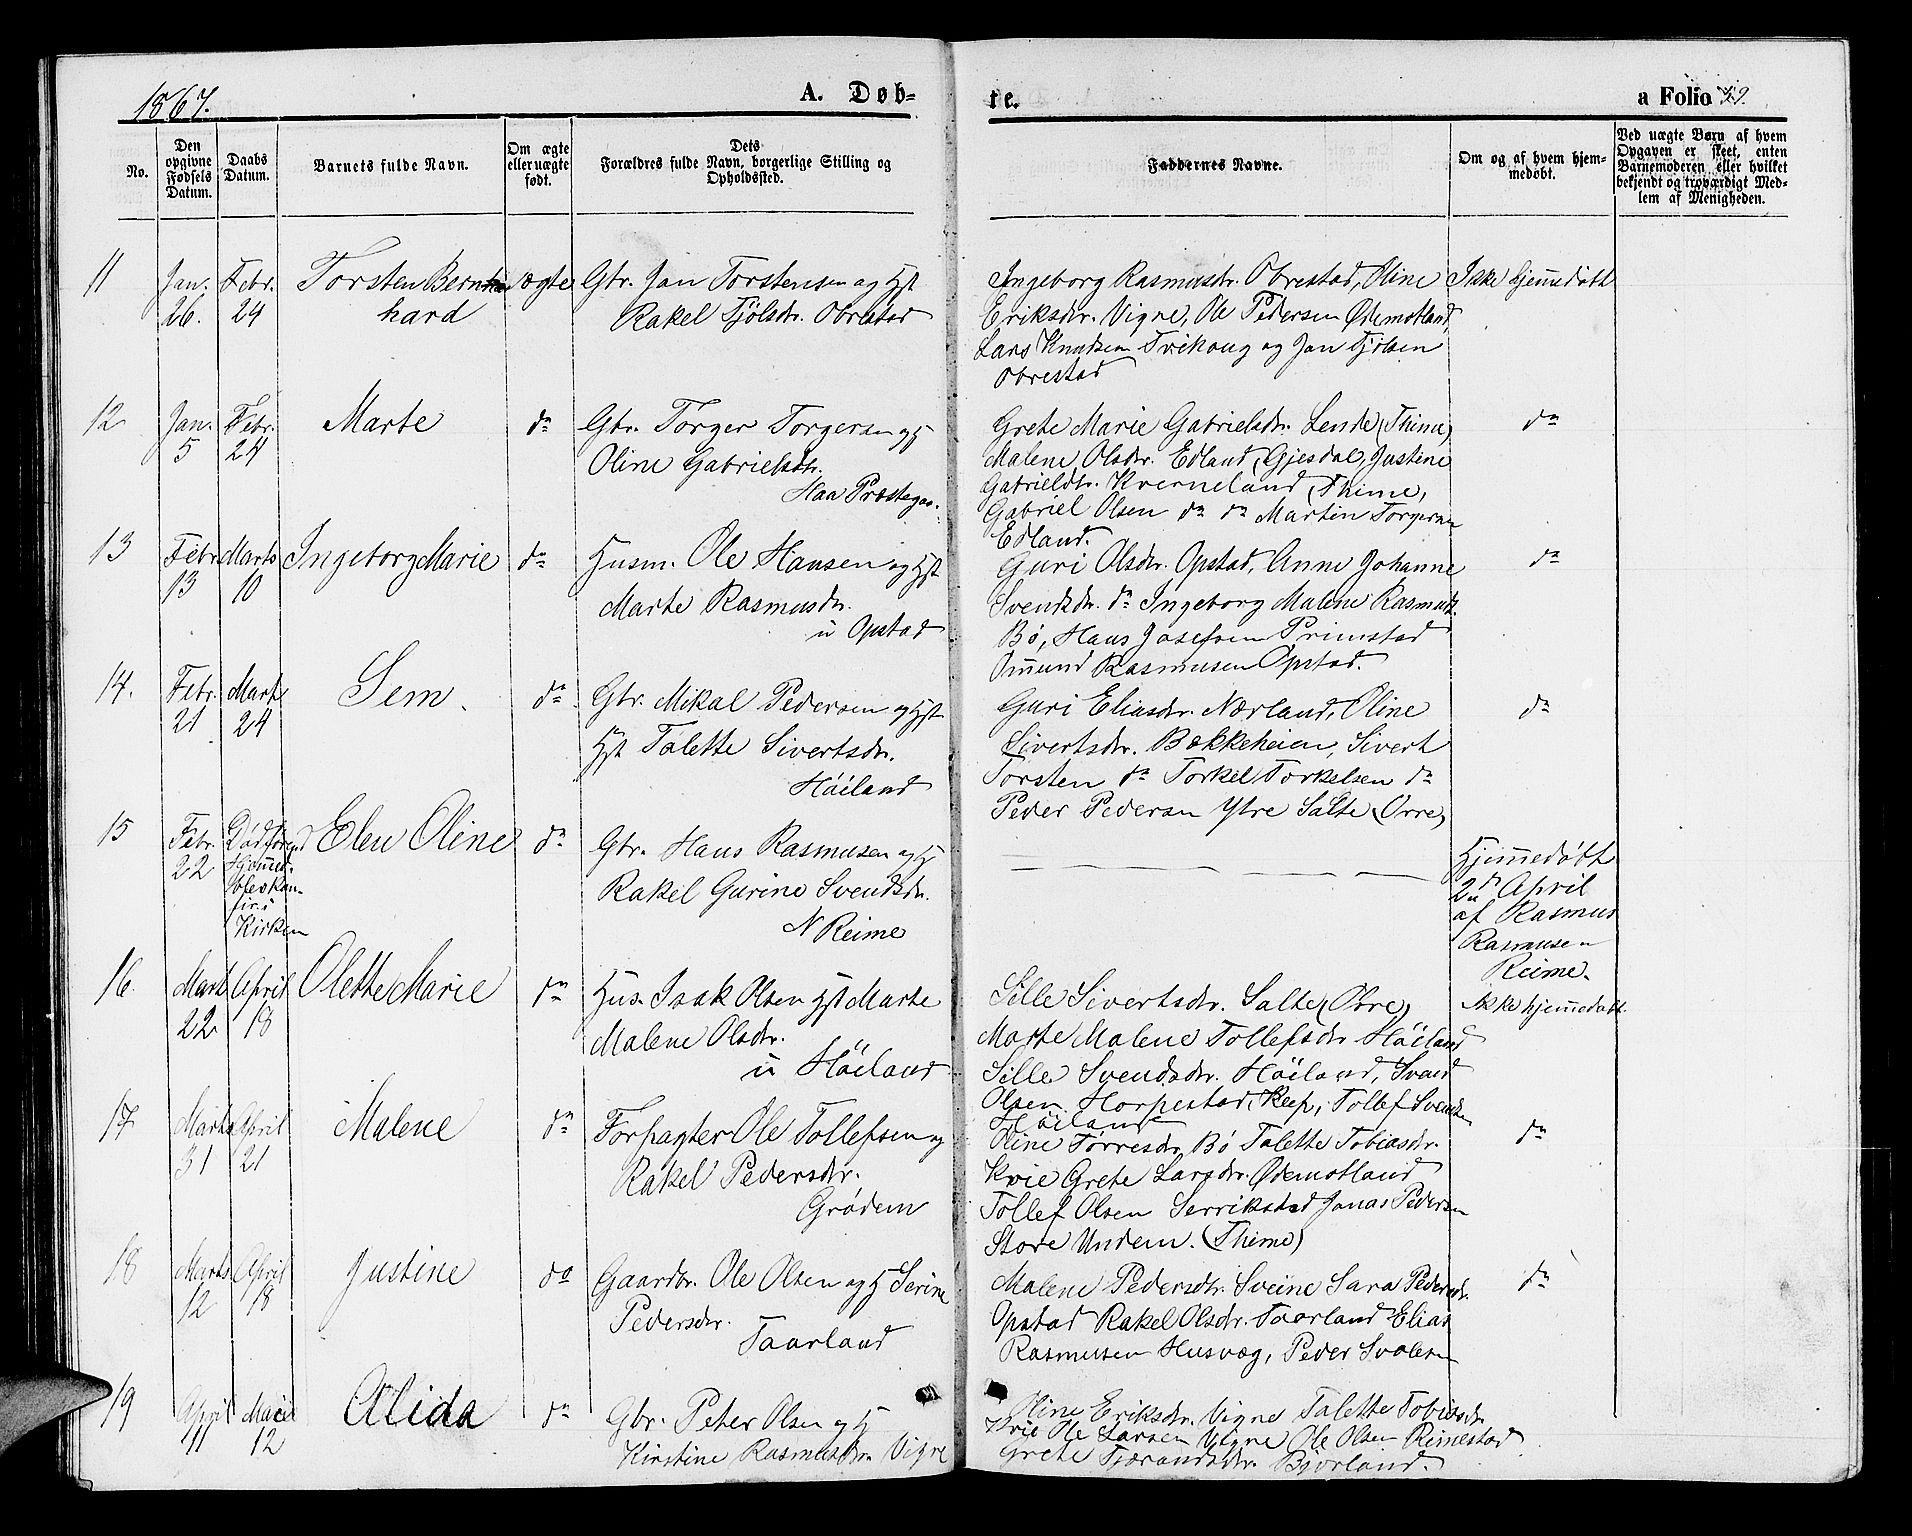 1867.
A. Døb=
te.
a Folio 29.
No.
Den opgivne Fødsels Datum.
Daabs Datum.
Barnets fulde Navn.
Om ægte eller uægte født.
Dets
Forældres fulde Navn, borgerlige Stilling og
Opholdssted.
Faddernes Navne.
Om og af hvem hjem-
medøbt.
Ved uægte Børn af hvem
Opgaven er skeet, enten
Barnemoderen eller hvilket
bekjendt og troværdigt Med-
lem af Menigheden.
11
Jan. 26.
Febr. 24
Torsten Bern
hard
ægte
Gbr. Jan Torstensen og Hst
Rakel Fjölsdr. Obrestad
Ingeborg Rasmusdr. Obrestad, Oline
Eriksdr. Vigne, Ole Pedersen Ødemotland
Lars Knudsen Tvihoug og Jan Fjolsen
Obrestad
Ikke hjemmedøbt
12
Jan. 5
Febr. 24
Marte
do
Gbr. Torger Torgersen og H
Oline Gabrielsdtr.
Haa Præstegar.
Grete Marie Gabrielsdr. Lende (Thime)
Malene Olsdr. Edland, Gjesdal, Justine
Gabrielsdtr. Kverneland (Thime,
Gabriel Olsen do do Martin Torgersen
Edland.
do
13
Febr 13
Marts 10
Ingeborg Marie
do
Husm. Ole Hansen og Hst
Marte Rasmusdr.
u Opstad
Guri Olsdr. Opstad, Anne Johanne
Svendsdr. do Ingeborg Malene Rasmusdr
Bø, Hans Josefsen Primstad
Omund Rasmusen Opstad.
do
14.
Febr. 21
Marts 24
Sem.
do
Gbr. Mikal Pedersen og Hst
Hst Talette Sivertsdr.
Höiland
Guri Eliasdr. Nærland, Oline
Sivertsdr. Bækkeheien, Sivert
Torsten do Torkel Torkelsen do
Peder Pedersen Ytre Salte (Orre)
do
15
Febr. 22
Død førend
Hjemmed.
blev kon-
fir. i
Kirken
Elen Oline
do
Gbr. Hans Rasmusen og H
Rakel Gurine Svendsdr.
N Reime
Hjemmedøbt
2n April
af Rasmus
Rasmusen
Reime.
16.
Marts 22
April 18
Olette Marie
do
Hus. Isak Olsen Hst Marte
Malene Olsdr.
u Höiland
Sille Sivertsdr. Salte (Orre)
Marte Malene Tollefsdr Höiland
Sille Svendsdr. Höiland, Svend
Olsen Horpestad, Klep, Tollef Svendsen
Höiland
Ikke hjemmedøbt.
17
Marts 31
April 21
Malene
do
Forpagter Ole Tollefsen og
Rakel Pedersdr.
Grødem
Oline Tørresdr. Bø Talette Tobiasdr.
Kvie Grete Larsdr. Ødemotland
Tollef Olsen Serrikstad Jonas Pedersen
Store Undem. (Thime)
do
18
Marts 12
April 18
Justine
do
Gaardbr. Ole Olsen og H Serine
Pedersdr.
Taarland
Malene Pedersdr. Sveine Sara Pedersdr.
Opstad Rakel Olsdr. Taarland Elias
Rasmusen Husvæg, Peder Svolesen
do
19
April 11
Maii 12
Alida
do
Gbr. Peter Olsen og H
Kirstine Rasmusdr. Vigre
Oline Eriksdr. Vigne Talette Tobiasdr
Kvie Ole Larsen Vigne Ole Olsen Reimestad
Grete Tjerandsdr. Bjorland.